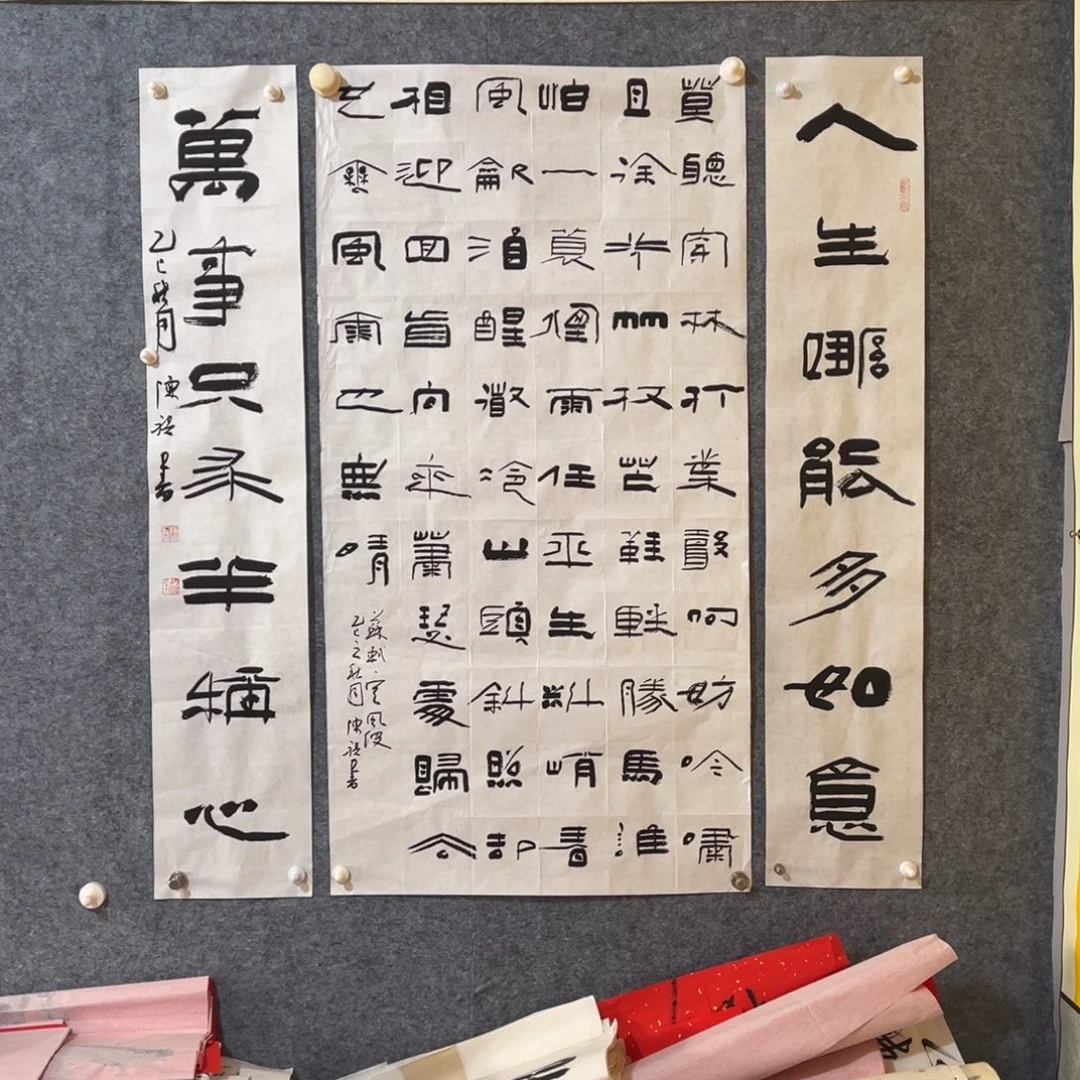 人生哪能多如意
莫聽穿林打葉聲何妨吟嘯
且徐行竹杖芒鞋輕勝馬誰
怕一蓑煙雨任平生料峭春
風龡酒醒微冷山頭斜照却
相迎回首向來蕭瑟處歸去
也無風雨也無晴
蘇軾·定風波
乙巳之秋月 陳書
萬事只求半稱心
乙巳秋月 陳書